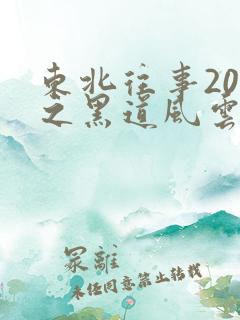 東北往事20
之黑道風雲
冢離
未经同意禁止转载